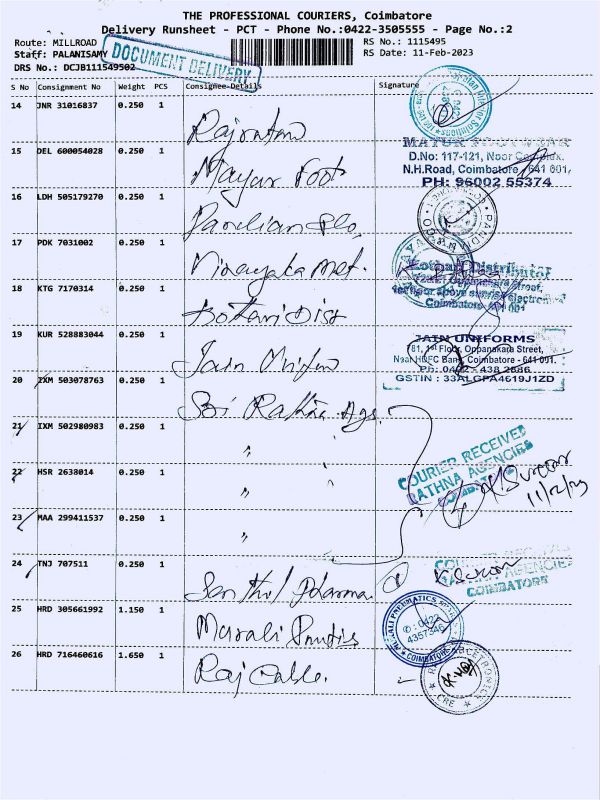 THE PROFESSIONAL COURIERS, Coimbatore
Delivery Runsheet - PCT - Phone No.:0422-3505555 - Page No.:2
Route: MILLROAD
RS No.: 1115495
Staff: PALANISAMY
RS Date: 11-Feb-2023
DRS No.: DCJB111549502
DOCUMENT DELIVERY
S No Consignment No Weight PCS Consignee-Details Signature
14 JNR 31016837 0.250 1
15 DEL 600054028 0.250 1 Mayur Foot
D.No: 117-121, Noor Complex.
N.H.Road, Coimbatore - 641 001,
PH: 96002 55374
16 LDH 505179270 0.250 1
17 PDK 7031002 0.250 1 Vinayaka Met.
18 KTG 7170314 0.250 1 Kothari Dist
Kothari Distributor
Coimbatore - 641 001
19 KUR 528883044 0.250 1 Jain Unifom
JAIN UNIFORMS
781, 1st Floor, Oppanakara Street,
Near HDFC Bank, Coimbatore - 641 001.
Ph: 0422 - 438 2886
GSTIN : 33ALGPA4619J1ZD
20 IXM 503078763 0.250 1 Sri Rathna Ags.
21 IXM 502980983 0.250 1 "
COURIER RECEIVED
RATHNA AGENCIES
COIMBATORE
22 HSR 2638014 0.250 1 "
11/2/23
23 MAA 299411537 0.250 1 "
24 TNJ 707511 0.250 1 Senthil Pharma
COIMBATORE
25 HRD 305661992 1.150 1 Murali
MURALI PNEUMATICS
0422
4357346
COIMBATORE
26 HRD 716460616 1.650 1 Raj Cable.
CBE